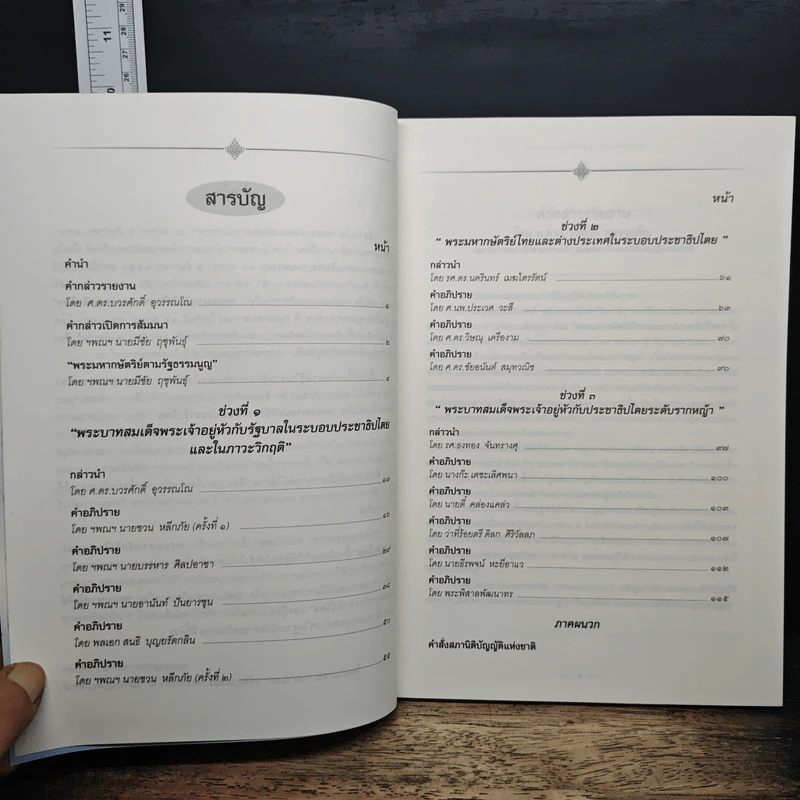 11
29
28
27
26
สารบัญ
หน้า
คำนำ
คำกล่าวรายงาน
โดย ศ.ดร.บวรศักดิ์ อุวรรณโณ ๑
คำกล่าวเปิดการสัมมนา
โดย ฯพณฯ นายมีชัย ฤชุพันธุ์ ๒
"พระมหากษัตริย์ตามรัฐธรรมนูญ"
โดย ฯพณฯ นายมีชัย ฤชุพันธุ์ ๔
ช่วงที่ ๑
"พระบาทสมเด็จพระเจ้าอยู่หัวกับรัฐบาลในระบอบประชาธิปไตย
และในภาวะวิกฤติ"
กล่าวนำ
โดย ศ.ดร.บวรศักดิ์ อุวรรณโณ ๑๓
คำอภิปราย
โดย ฯพณฯ นายชวน หลีกภัย (ครั้งที่ ๑) ๑๖
คำอภิปราย
โดย ฯพณฯ นายบรรหาร ศิลปอาชา ๒๙
คำอภิปราย
โดย ฯพณฯ นายอานันท์ ปันยารชุน ๓๔
คำอภิปราย
โดย พลเอก สนธิ บุญยรัตกลิน ๕๐
คำอภิปราย
โดย ฯพณฯ นายชวน หลีกภัย (ครั้งที่ ๒) ๕๕
หน้า
ช่วงที่ ๒
" พระมหากษัตริย์ไทยและต่างประเทศในระบอบประชาธิปไตย "
กล่าวนำ
โดย รศ.ดร.นครินทร์ เมฆไตรรัตน์ ๖๑
คำอภิปราย
โดย ศ.นพ.ประเวศ วะสี ๖๓
คำอภิปราย
โดย ศ.ดร.วิษณุ เครืองาม ๗๐
คำอภิปราย
โดย ศ.ดร.ชัยอนันต์ สมุทวณิช ๙๐
ช่วงที่ ๓
" พระบาทสมเด็จพระเจ้าอยู่หัวกับประชาธิปไตยระดับรากหญ้า "
กล่าวนำ
โดย รศ.ธงทอง จันทรางศุ ๙๘
คำอภิปราย
โดย นางก๊ะ เตชะเลิศพนา ๑๐๐
คำอภิปราย
โดย นายตี๋ คล่องแคล่ว ๑๐๓
คำอภิปราย
โดย ว่าที่ร้อยตรี ดิลก ศิริวัลลภ ๑๐๗
คำอภิปราย
โดย นายธีรพจน์ หะยีอาแว ๑๑๒
คำอภิปราย
โดย พระพิศาลพัฒนาทร ๑๑๕
ภาคผนวก
คำสั่งสภานิติบัญญัติแห่งชาติ